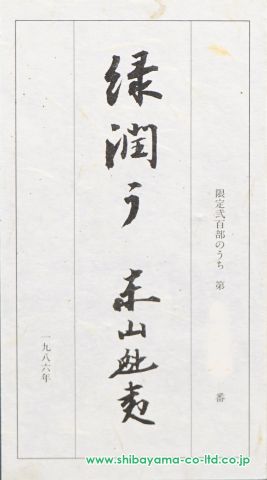 限定弐百部のうち 第 番
緑潤う 東山魁夷
一九八六年
www.shibayama-co-ltd.co.jp